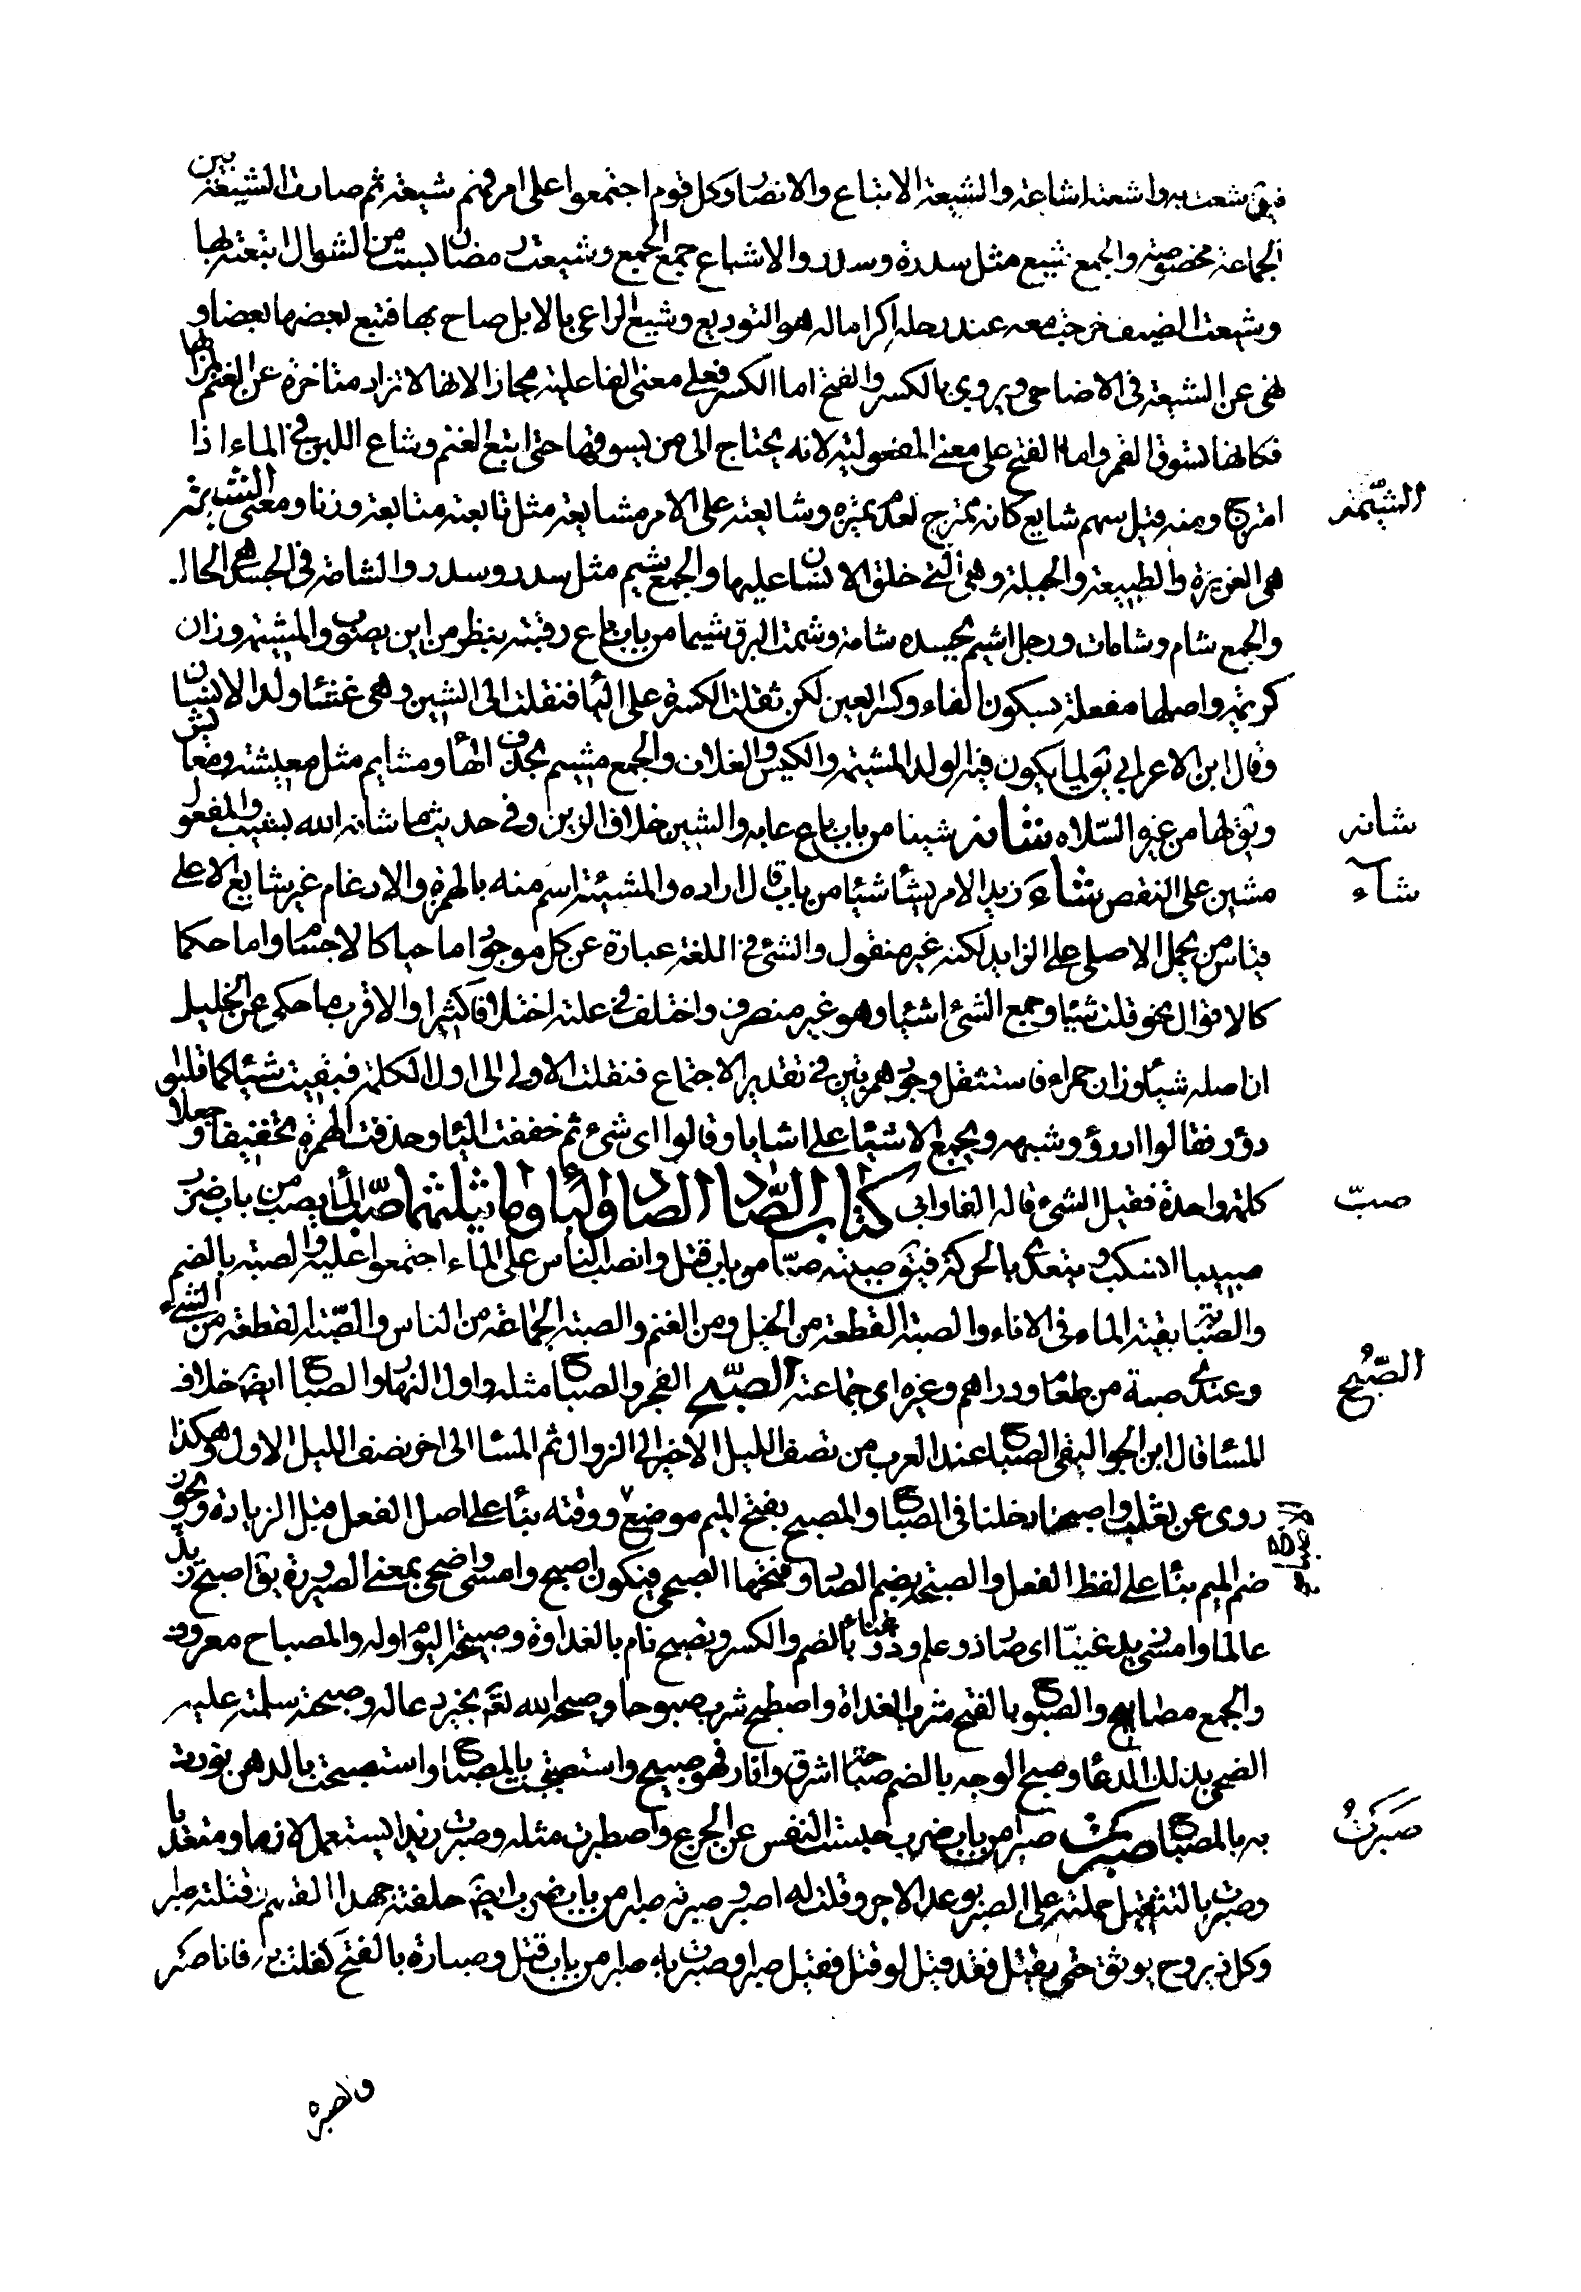 فيق شعت به واشعته اشاعة والشيعة الاتباع والانصار وكل قوم اجتمعوا على امر فهم شيعة ثم صارت الشيعة بين
الجماعة مخصوصة والجمع شيع مثل سدرة وسدر والاشياع جمع الجمع وشيعت رمضان بست من الشوال اتبعته بها
وشيعت الضيف خرجت معه عند رحله اكراما له هو التوديع وشيع الراعي بالابل صاح بها فتبع بعضها بعضا و
نهى عن الشيعة في الاضاحي ويروى بالكسر والفتح اما الكسر فعلى معنى الفاعلية مجازا لانها لا تزاد متاخرة عن الغنم لهزالها
فكانها تسوق الغنم واما الفتح على معنى المفعولية لانه يحتاج الى من يسوقها حتى اتبع الغنم وشاع اللبن في الماء اذا
الشيمة
امتزج ومنه قيل سهم شايع كانه يمتزج لعدم تميزه وشايعته على الامر مشايعة مثل تابعته متابعة وزنا ومعنى الشيمة
هي الغريزة والطبيعة والجبلة وهي التي خلق الانسان عليها والجمع شيم مثل سدر وسدر والشامة في الجسد هي الخال
والجمع شام وشامات ورجل اشيم بجسده شامة وشمت البرق شيما من باب باع رقبته ينظر من اين يصوب والمشيمة وزان
كريمة واصلها مفعلة بسكون الفاء وكسر العين لكن ثقلت الكسرة على الياء فنقلت الى الشين وهي غشاء ولد الانسان
وقال ابن الاعرابي يق لما يكون فيه الولد المشيمة والكيس والغلاف والجمع مشيم بحذف الهاء ومشايم مثل معيشة ومعايش
شانه
ويق لها من غيره السلاه شانه شينا من باب باع عابه والشين خلاف الزين وفي حديث ما شانه الله بشيب والمفعول
شآء
مشين على النقص شاء زيد الامر يشاء شيئا من باب قال اراده والمشيئة اسم منه بالهمزة والادغام غير شايع الا على
قياس من يحمل الاصلي على الزايد لكنه غير منقول والشئ في اللغة عبارة عن كل موجود اما حسا كالاجسام واما حكما
كالاقوال نحو قلت شيئا وجمع الشئ اشياء وهو غير منصرف واختلف في علته اختلافا كثيرا والاقرب ما حكي عن الخليل
ان اصله شيئاء وزان حمراء فاستثقل وجود همزتين في تقدير الاجتماع فنقلت الاولى الى اول الكلمة فبقيت اشياء كما قلبوا
دؤر فقالوا اادر وشبهه ويجمع الاشياء على اشايا وقالوا اي شئ ثم خففت الياء وحذفت الهمزة تخفيفا وجعلا
صبّ
كلمة واحدة فقيل ايش قاله الفارابي كتاب الصاد الصاد والباء وما يثلثهما صبّ الماء يصب من باب ضرب
صبيبا انسكب ويتعدى بالحركة فيق صببته صبّا من باب قتل وانصب الناس على الماء اجتمعوا عليه والصبة بالضم
والصبابة بقية الماء في الاناء والصبة القطعة من الخيل ومن الغنم والصبة الجماعة من الناس والصّبة القطعة من الشيء
الصّبُح
وعندي صبة من طعام ودراهم وغيره اي جماعة الصّبح الفجر والصباح مثله واول النهار والصباح ايضا خلاف
المساء قال ابن الجواليقي الصباح عند العرب من نصف الليل الاخير الى الزوال ثم المساء الى اخر نصف الليل الاول وهكذا
روى عن ثعلب واصبحنا دخلنا في الصباح والمصبح بفتح الميم موضع ووقته بناء على اصل الفعل قبل الزيادة ويجوز
ضم الميم بناء على لفظ الفعل والصبحة بضم الصاد وفتحها الضحى ويكون اصبح وامسى واضحى بمعنى الصيرورة يق اصبح زيد
عالما وامسى زيد غنيّا اي صار ذو علم وذو غناء بالضم والكسر وتصبح نام بالغداوة وصبيحة اليوم اوله والمصباح معروف
والجمع مصابيح والصبوح بالفتح شرب الغداة واصطبح شرب صبوحا وصبحه الله تع بخير دعا له وصبحته سلمت عليه
الضحى بذلك الدعاء وصبح الوجه بالضم صباحة اشرق وانار فهو صبيح واستصبحت بالمصباح واستصبحت بالدهن نورت
صَبَرْتُ
به بالمصباح صبرت صبرا من باب ضرب حبست النفس عن الجزع واصطبرت مثله وصبرت زيدا يستعمل لازما ومتعديا
وصبرت بالتثقيل حملته على الصبر بوعد الاجر وقلت له اصبر وصبرته صبرا من باب ضرب ايضا حلفته جهدا القسم فقتلته صبرا
وكل ذي روح يوثق حتى يقتل فقد قيل لو قتل فقيل صبرا وصبرت به صبرا من باب قتل وصبارة بالفتح كفلت به فانا صبير